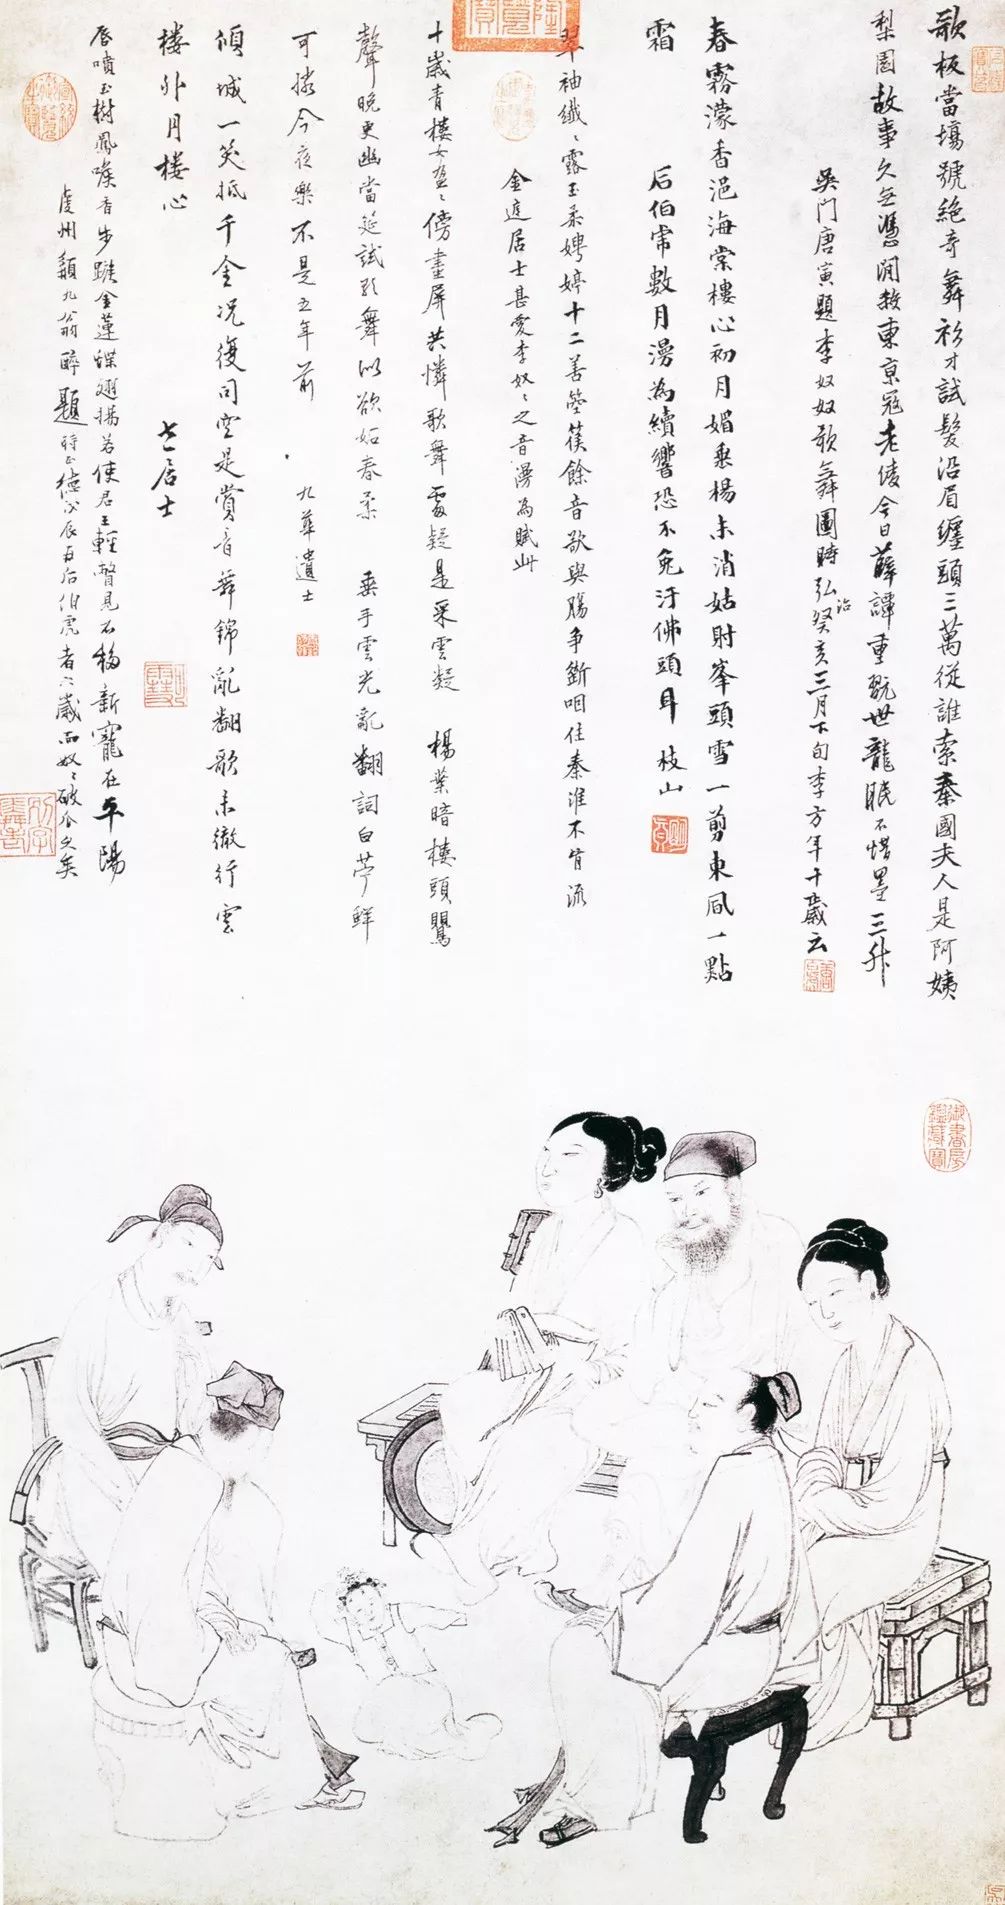 歌板當場號絶奇舞衫才試髮沿眉纏頭三萬從誰索秦國夫人是阿姨
梨園故事久無憑閒教東京冠老伶今日薛譚重玩世龍眠不惜墨三升
吳門唐寅題李奴奴歌舞圖時弘治癸亥三月下旬李方年十歲云
春霧濛香浥海棠樓心初月媚垂楊未消姑射峯頭雪一剪東風一點
霜
后伯常數月漫為續響恐不免汙佛頭耳 枝山
翠袖纖纖露玉柔娉婷十二善箜篌餘音欲與腸爭斷咽住秦淮不肯流
金庭居士甚愛李奴奴之音漫為賦此
十歲青樓女 傍畫屏共憐歌舞處疑是采雲凝 楊葉暗樓頭鶯
聲晚更幽當筵試歌舞似欲妬春柔 垂手雲光亂翻詞白苧鮮
可憐今夜樂不是五年前 九華遺士
傾城一笑抵千金况復司空是賞音舞錦亂翻歌未徹行雲
樓外月樓心
七居士
唇噴玉樹鳳喉香步蹴金蓮蝶翅揚若使君王輕瞥見不移新寵在平陽
虔州 九翁醉題時正德戊辰 后伯虎者六歲而奴奴破瓜久矣
御書房鑑藏寶